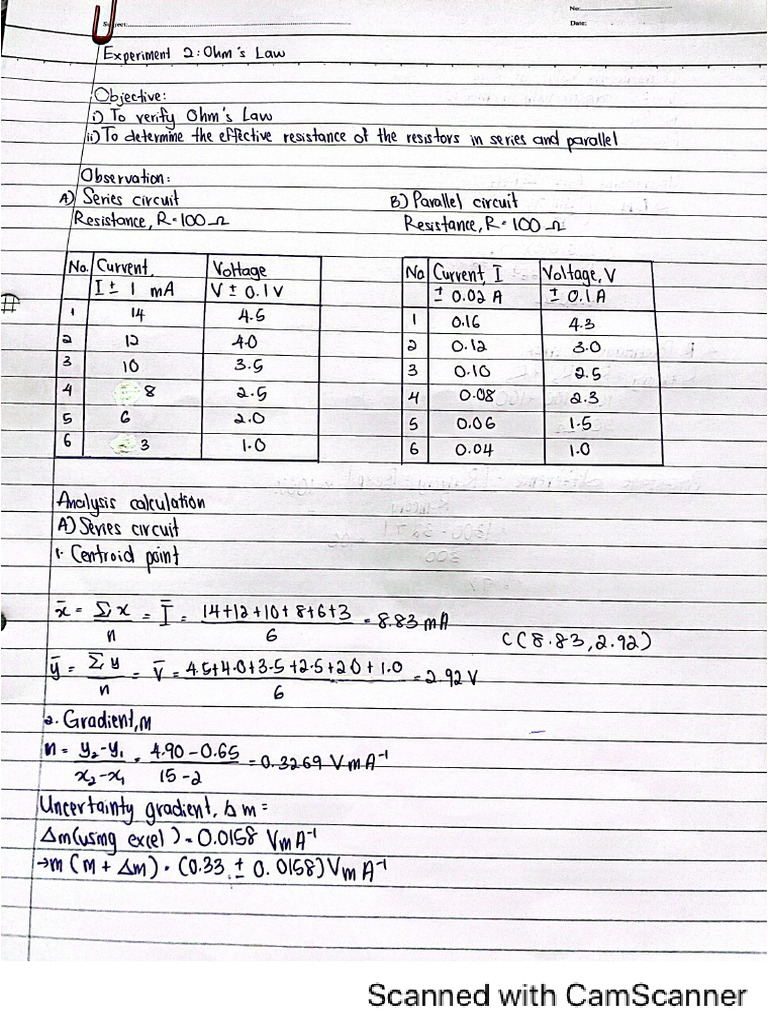 No:
Date:
Subject:
Experiment 2: Ohm's Law
Objective:
i) To verify Ohm's Law
ii) To determine the effective resistance of the resistors in series and parallel
Observation:
A) Series circuit
Resistance, R = 100 Ω
B) Parallel circuit
Resistance, R = 100 Ω
No. Current, I ± 1 mA Voltage V ± 0.1 V
1 14 4.5
2 12 4.0
3 10 3.5
4 8 2.5
5 6 2.0
6 3 1.0
No Current, I ± 0.02 A Voltage, V ± 0.1 A
1 0.16 4.3
2 0.12 3.0
3 0.10 2.5
4 0.08 2.3
5 0.06 1.5
6 0.04 1.0
#
Analysis calculation
A) Series circuit
1. Centroid point
x̄ = Σx / n = Ī = 14+12+10+8+6+3 / 6 = 8.83 mA
C(8.83, 2.92)
ȳ = Σy / n = V̄ = 4.5+4.0+3.5+2.5+2.0+1.0 / 6 = 2.92 V
2. Gradient, m
m = y₂-y₁ / x₂-x₁ = 4.90 - 0.65 / 15 - 2 = 0.3269 V mA⁻¹
Uncertainty gradient, Δm =
Δm (using excel) = 0.0158 V mA⁻¹
→ m (m + Δm) = (0.33 ± 0.0158) V mA⁻¹
Scanned with CamScanner